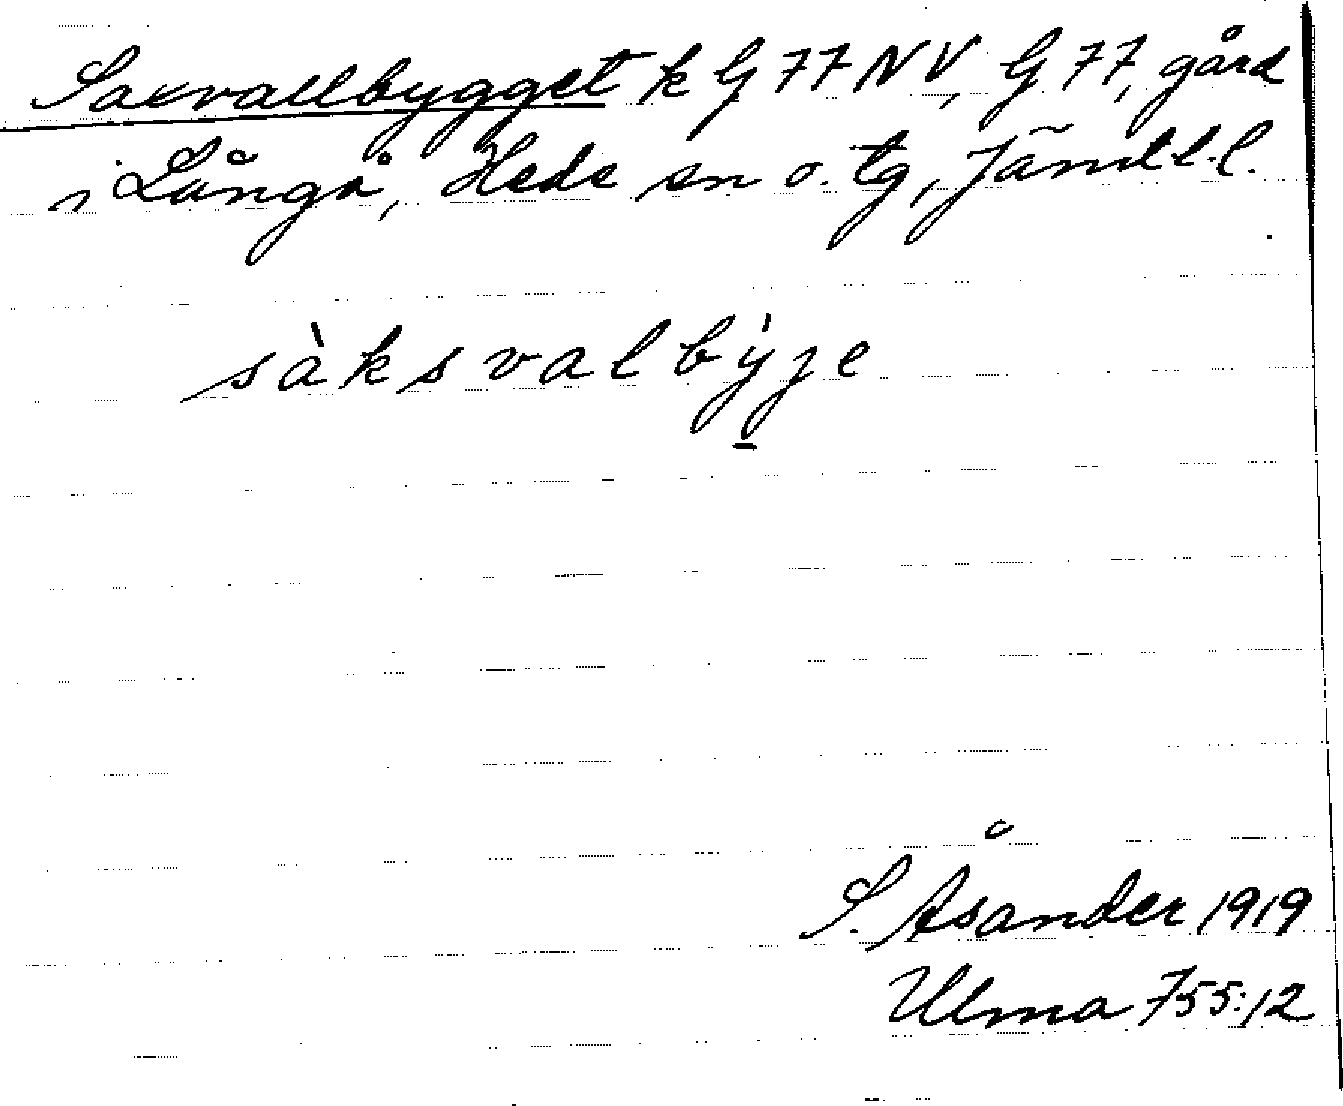 Saxvallbygget k G 77 NV, G 77, gård
i Långå, Hede sn o. tg, Jämtl. l.
sàksvalbỳ̠je
S. Åsander 1919
Ulma 755:12